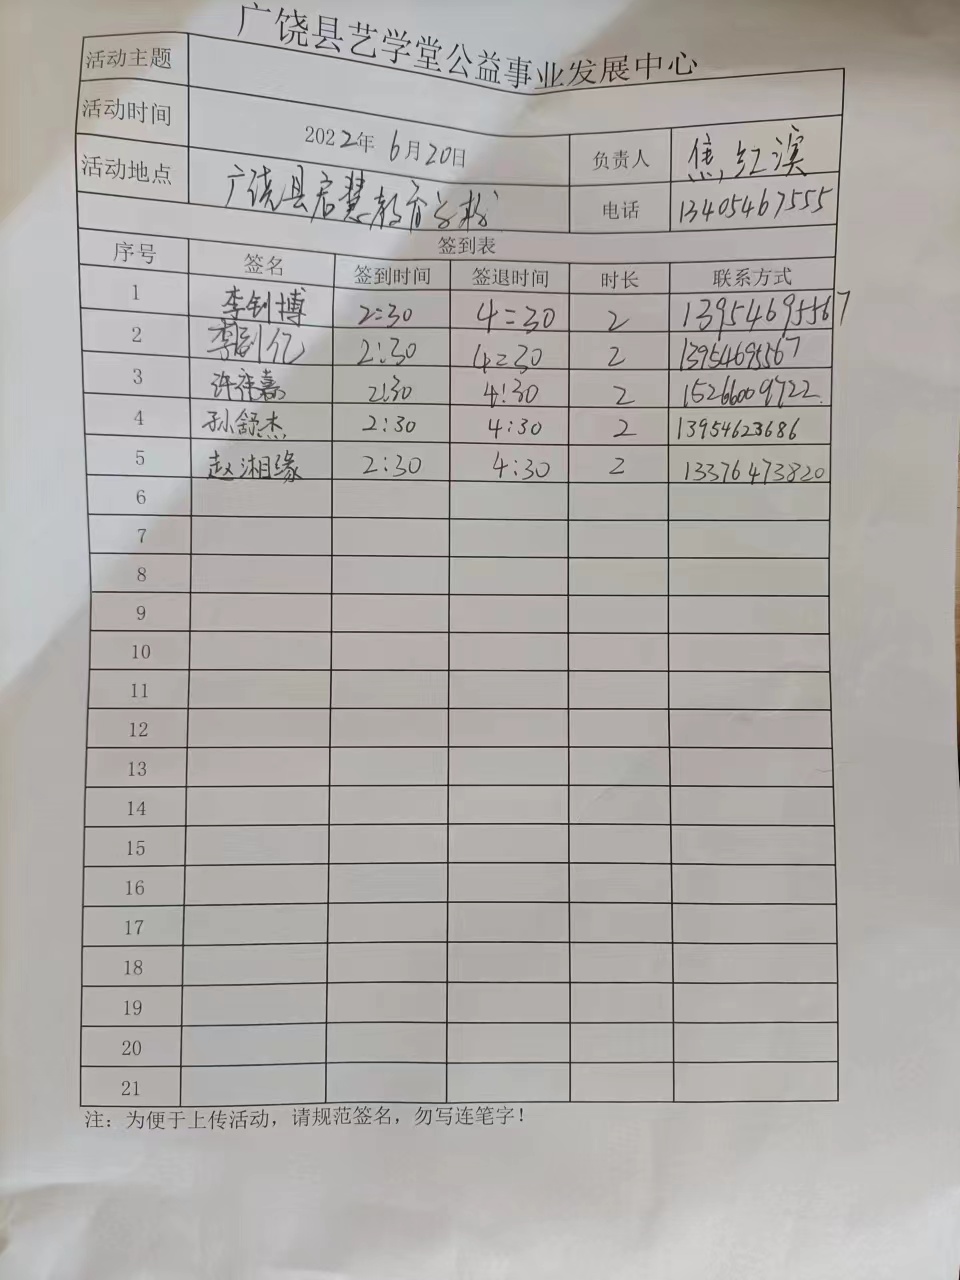 广饶县艺学堂公益事业发展中心
活动主题
活动时间 2022年 6月20日 负责人 焦红滨
活动地点 广饶县启慧教育学校 电话 13405467555
签到表
序号 签名 签到时间 签退时间 时长 联系方式
1 李钊博 2:30 4:30 2 13954695567
2 李 亿 2:30 4:30 2 13954695567
3 许 嘉 2:30 4:30 2 15266009722
4 孙舒杰 2:30 4:30 2 13954623686
5 赵湘缘 2:30 4:30 2 13376473820
6
7
8
9
10
11
12
13
14
15
16
17
18
19
20
21
注：为便于上传活动，请规范签名，勿写连笔字！